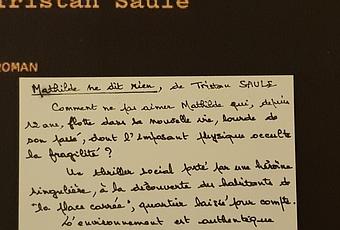 Tristan Saule
ROMAN
Mathilde ne dit rien, de Tristan SAULE
Comment ne pas aimer Mathilde qui, depuis
12 ans, flotte dans sa nouvelle vie, lourde de
son passé, dont l'imposant physique occulte
la fragilité ?
Un thriller social porté par une héroïne
singulière, à la découverte des habitants de
"la place carrée", quartier laissé pour compte.
L'environnement est authentique